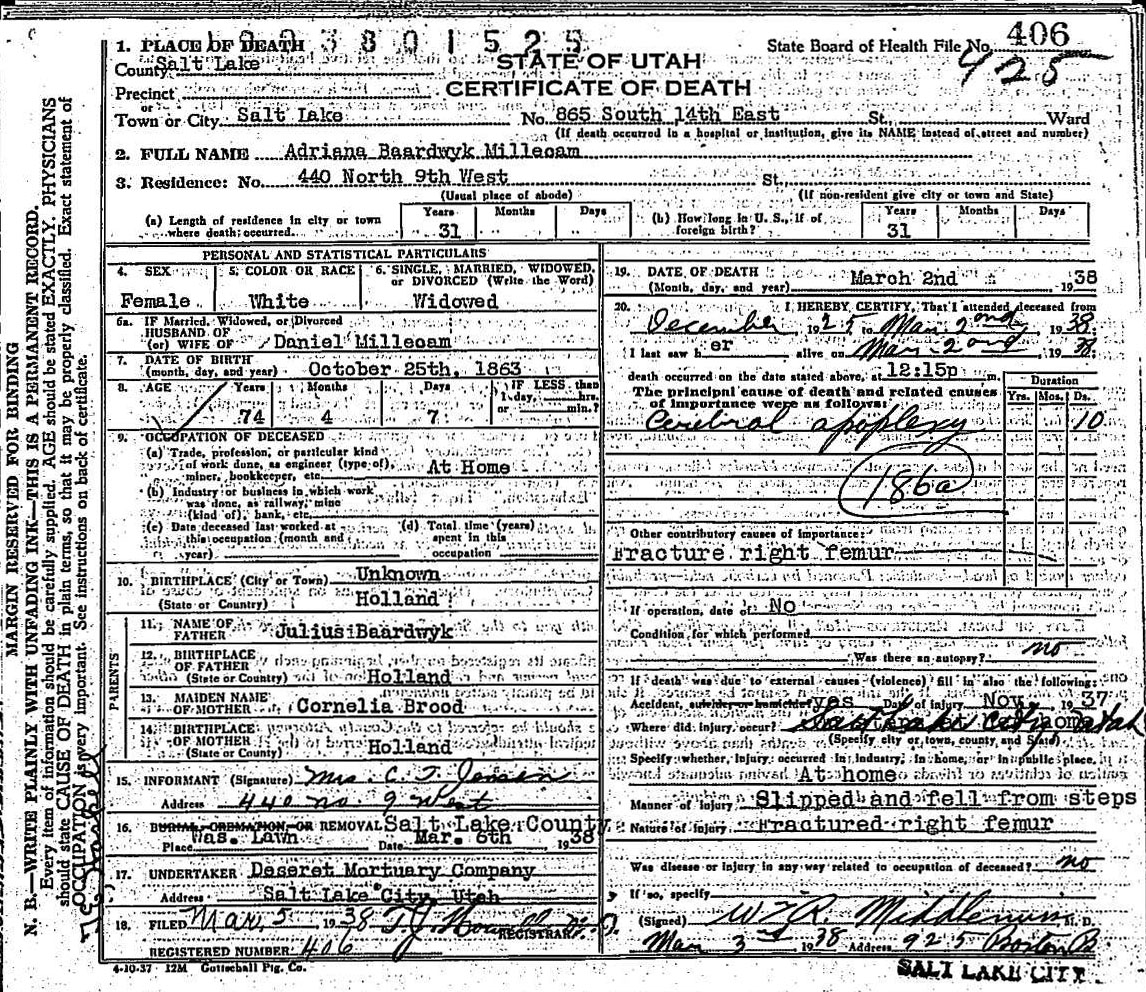 1. PLACE OF DEATH
193801525
State Board of Health File No. 406
425
County Salt Lake
STATE OF UTAH
Precinct
CERTIFICATE OF DEATH
or
Town or City Salt Lake No. 865 South 14th East St. Ward
(If death occurred in a hospital or institution, give its NAME instead of street and number)
2. FULL NAME Adriana Baardwyk Millecam
3. Residence: No. 440 North 9th West St.
(Usual place of abode) (If non-resident give city or town and State)
(a) Length of residence in city or town where death occurred. Years 31 Months Days
(b) How long in U. S., if of foreign birth? Years 31 Months Days
PERSONAL AND STATISTICAL PARTICULARS
4. SEX Female
5. COLOR OR RACE White
6. SINGLE, MARRIED, WIDOWED, or DIVORCED (Write the Word) Widowed
6a. IF Married, Widowed, or Divorced
HUSBAND OF
(or) WIFE OF Daniel Millecam
7. DATE OF BIRTH
(month, day, and year) October 25th, 1863
8. AGE Years 74 Months 4 Days 7 IF LESS than 1 day, hrs. or min.?
9. OCCUPATION OF DECEASED
(a) Trade, profession, or particular kind
of work done, as engineer (type of), At Home
miner, bookkeeper, etc.
(b) Industry or business in which work
was done, as railway, mine
(kind of), bank, etc.
(c) Date deceased last worked at this occupation (month and year)
(d) Total time (years) spent in this occupation
10. BIRTHPLACE (City or Town) Unknown
(State or Country) Holland
PARENTS
11. NAME OF FATHER Julius Baardwyk
12. BIRTHPLACE OF FATHER
(State or Country) Holland
13. MAIDEN NAME OF MOTHER Cornelia Brood
14. BIRTHPLACE OF MOTHER
(State or Country) Holland
15. INFORMANT (Signature) Mrs. C. T. Jensen
Address 440 no. 9 West
16. BURIAL, CREMATION, OR REMOVAL Salt Lake County
Place Was. Lawn Date Mar. 6th 1938
17. UNDERTAKER Deseret Mortuary Company
Address Salt Lake City, Utah
18. FILED Mar. 5 1938 T. J. Howells M. D.
REGISTRAR.
REGISTERED NUMBER 406
4-10-37 12M Gottschall Ptg. Co.
19. DATE OF DEATH
(Month, day, and year) March 2nd 1938
20. I HEREBY CERTIFY, That I attended deceased from
December 1925 to Mar 2nd, 1938.
I last saw h er alive on Mar 2nd, 1938.
death occurred on the date stated above, at 12:15p m.
The principal cause of death and related causes
of importance were as follows:
Duration
Yrs. Mos. Ds.
Cerebral apoplexy 10
186a
Other contributory causes of importance:
Fracture right femur
If operation, date of No
Condition for which performed
Was there an autopsy? no
If death was due to external causes (violence) fill in also the following:
Accident, suicide or homicide? yes Day of injury Nov. 1937
Where did injury occur? Salt Lake City Utah
(Specify city or town, county, and State)
Specify whether injury occurred in industry, in home, or in public place.
At home
Manner of injury Slipped and fell from steps
Nature of injury Fractured right femur
Was disease or injury in any way related to occupation of deceased? no
If so, specify
(Signed) W. R. Middlemiss M. D.
Mar 3rd 1938 Address 925 Boston B
SALT LAKE CITY
MARGIN RESERVED FOR BINDING
N. B.—WRITE PLAINLY WITH UNFADING INK—THIS IS A PERMANENT RECORD.
Every item of information should be carefully supplied. AGE should be stated EXACTLY. PHYSICIANS
should state CAUSE OF DEATH in plain terms, so that it may be properly classified. Exact statement of
OCCUPATION is very important. See instructions on back of certificate.